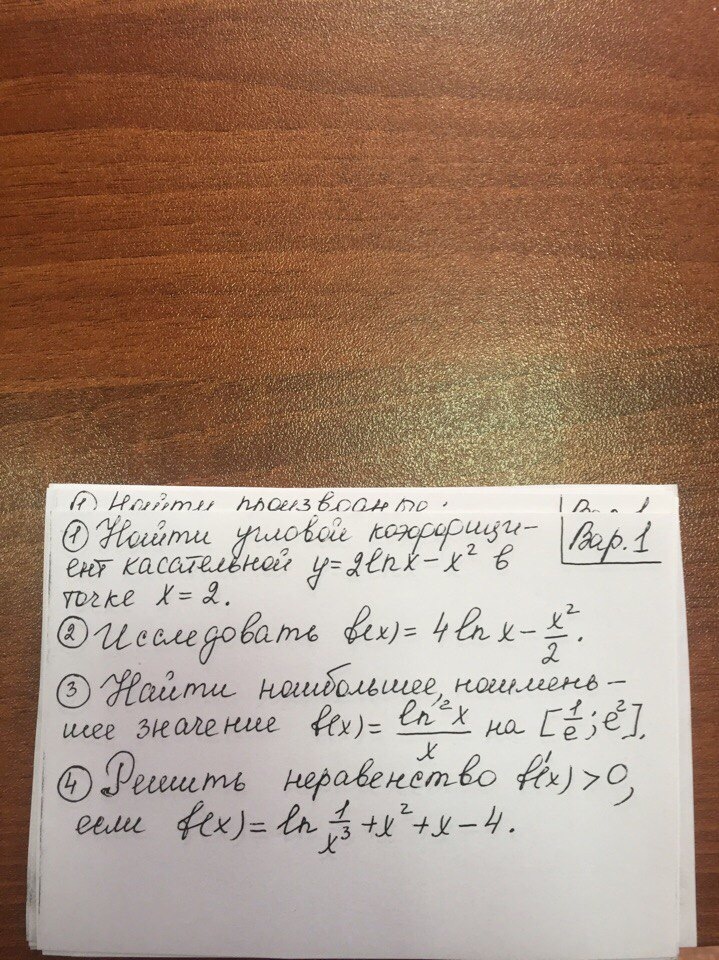 ① Найти производную:
Вар. 1
① Найти угловой коэффици-
ент касательной y = 2lnx − x² в
точке x = 2.
Вар. 1
② Исследовать f(x) = 4 ln x − x²/2.
③ Найти наибольшее, наимень-
шее значение f(x) = ln²x/x на [1/e; e²].
④ Решить неравенство f'(x) > 0,
если f(x) = ln 1/x³ + x² + x − 4.